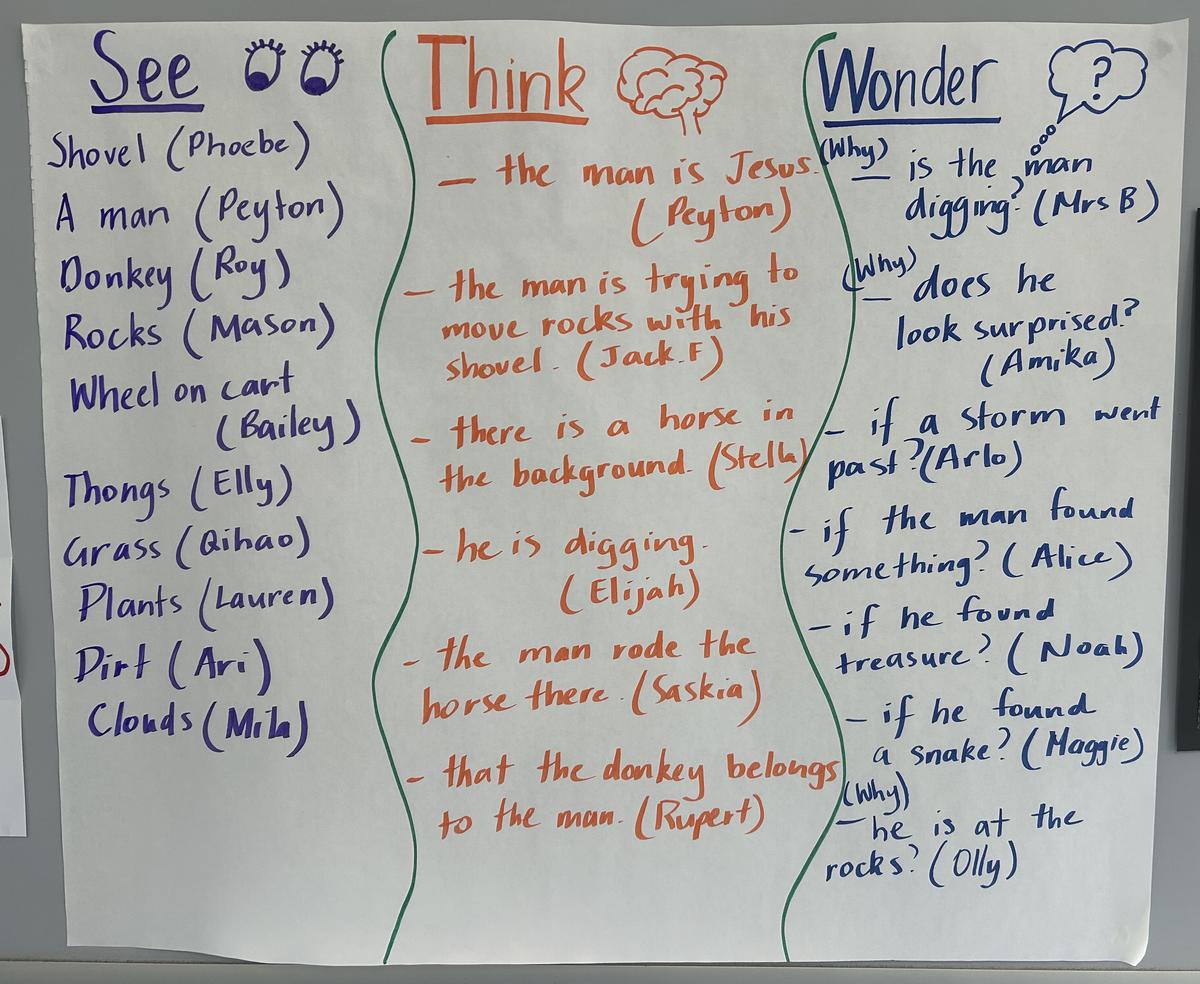 See
Shovel (Phoebe)
A man (Peyton)
Donkey (Roy)
Rocks (Mason)
Wheel on cart
(Bailey)
Thongs (Elly)
Grass (Qihao)
Plants (Lauren)
Dirt (Ari)
Clouds (Mila)
Think
— the man is Jesus.
(Peyton)
— the man is trying to
move rocks with his
shovel. (Jack.F)
- there is a horse in
the background. (Stella)
- he is digging.
(Elijah)
- the man rode the
horse there. (Saskia)
- that the donkey belongs
to the man. (Rupert)
Wonder
?
(Why)
— is the man
digging? (Mrs B)
(Why)
— does he
look surprised?
(Amika)
- if a storm went
past? (Arlo)
- if the man found
something? (Alice)
- if he found
treasure? (Noah)
- if he found
a snake? (Maggie)
(Why)
— he is at the
rocks? (Olly)